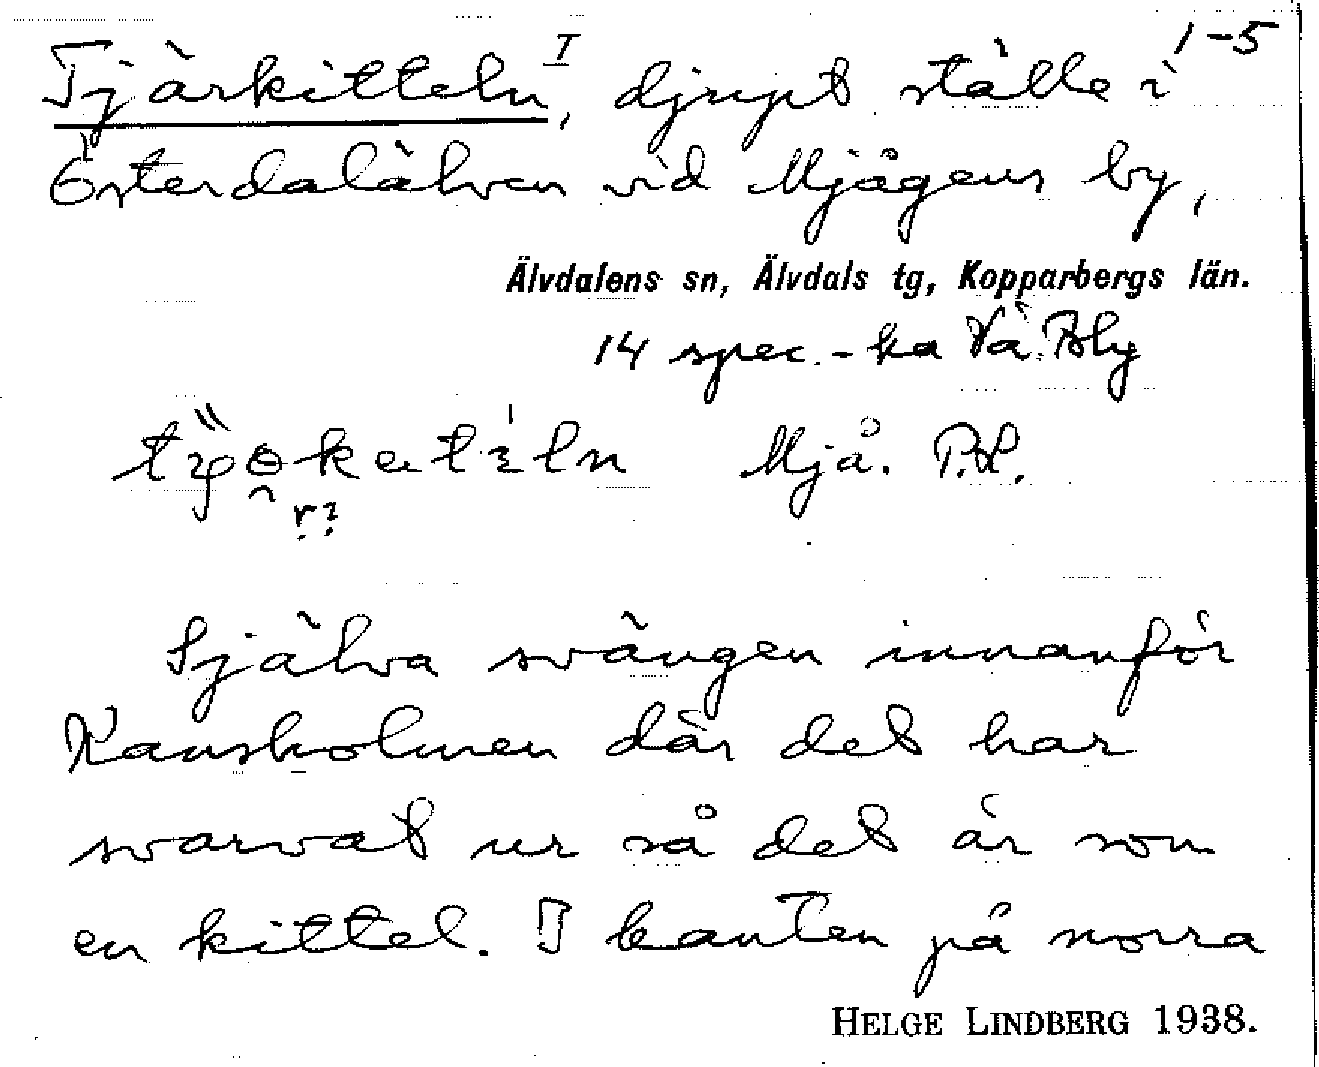 1-5
Tjärkitteln I, djupt ställe i
Österdalälven vid Mjågens by,
Älvdalens sn, Älvdals tg, Kopparbergs län.
14 spec.-ka Vä. Bly
Mjå. P.H.
r?
Själva svängen innanför
Kansholmen där det har
svarvat ur så det är som
en kittel. I kanten på norra
HELGE LINDBERG 1938.